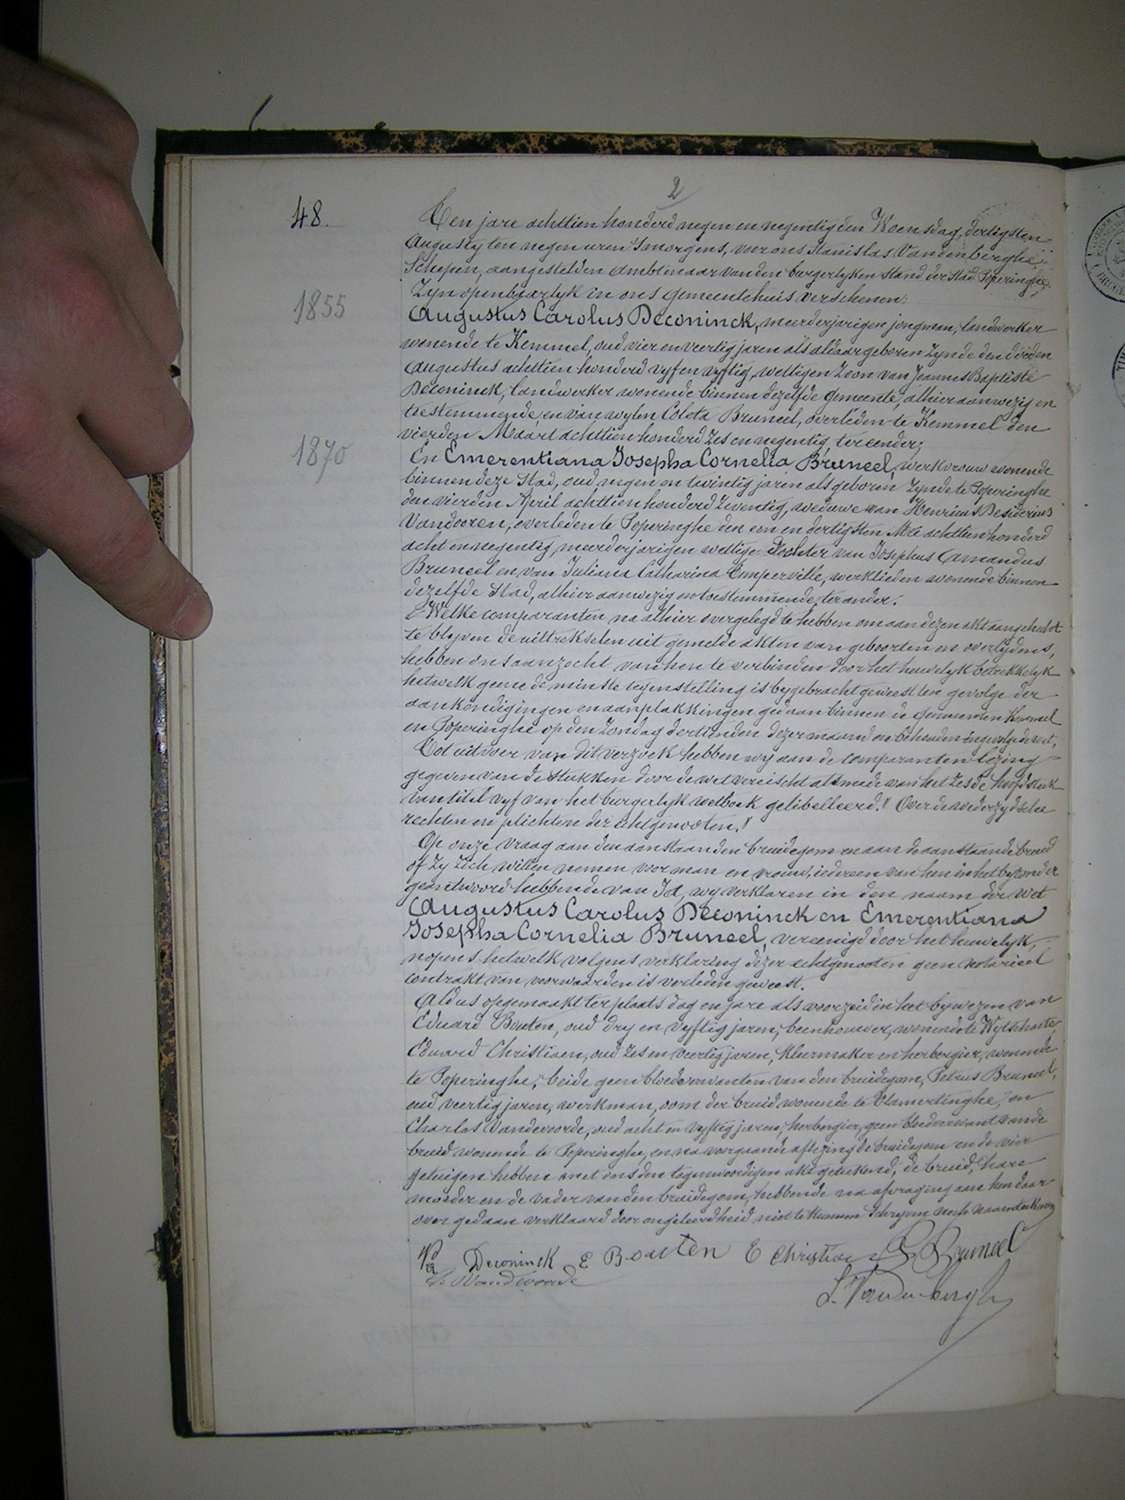 2
48.
Ten jare achttien honderd negen en negentig den Woensdag, dertigsten
Augusty ten negen uren 's morgens, voor ons Stanislas Vandenberghe,
Schepen, aangestelden ambtenaar van den burgerlyken stand der stad Poperinghe,
Zyn openbaarlyk in ons gemeentehuis verschenen:
1855
Augustus Carolus Deconinck, meerderjarigen jongman, landwerker
wonende te Kemmel, oud vier en veertig jaren als aldaar geboren zynde den derden
Augustus achttien honderd vyf en vyftig, wettigen zoon van Joannes Baptiste
Deconinck, landwerker wonende binnen dezelfde gemeente, alhier aanwezig en
toestemmende, en van wylen Coleta Bruneel, overleden te Kemmel den
vierden Maart achttien honderd zes en negentig, ter eender;
1870
En Emerentiana Josepha Cornelia Bruneel, werkvrouw wonende
binnen deze stad, oud negen en twintig jaren als geboren zynde te Poperinghe
den vierden April achttien honderd zeventig, weduwe van Henricus Desiderius
Vandooren, overleden te Poperinghe den een en dertigsten Mei achttien honderd
acht en negentig, meerderjarigen wettige dochter van Josephus Amandus
Bruneel en van Juliana Catharina Emperville, werklieden wonende binnen
dezelfde stad, alhier aanwezig en toestemmende, ter ander.
Welke comparanten na alhier overgelegd te hebben om aan dezen akt aangehecht
te blyven de uittrekselen uit gemelde akten van geboorten en overlydens,
hebben ons aanzocht van hen te verbinden door het huwelyk betrekkelyk
hetwelk geene de minste tegenstelling is bygebracht geweest ten gevolge der
aankondigingen en aanplakkingen gedaan binnen de gemeenten Kemmel
en Poperinghe op den zondag dertienden dezer maand en behouden ingevolge de wet.
Tot uitvoer van dit verzoek hebben wy aan de comparanten lezing
gegeven van de stukken door de wet vereischt alsmede van het zesde hoofdstuk
van titel vyf van het burgerlyk wetboek getitelleerd: Over de wederzydsche
rechten en plichten der echtgenooten.
Op onze vraag aan den aanstaanden bruidegom en aan de aanstaande bruid
of zy zich willen nemen voor man en vrouw, iedereen van hen in het byzonder
geantwoord hebbende van Ja, wy verklaren in den naam der wet
Augustus Carolus Deconinck en Emerentiana
Josepha Cornelia Bruneel, vereenigd door het huwelyk,
nopens hetwelk volgens verklaring dezer echtgenooten geen notarieel
contrakt van voorwaarden is verleden geweest.
Aldus opgemaakt ter plaats dag en jare als voorzeid in het bywezen van
Eduard Bouten, oud dry en vyftig jaren, beenhouwer, wonende te Wytschaete,
Eduard Christiaen, oud zes en veertig jaren, kleermaker en herbergier, wonende
te Poperinghe, beide geen bloedverwanten van den bruidegom, Petrus Bruneel,
oud veertig jaren, werkman, oom der bruid wonende te Vlamertinghe, en
Charles Vandevoorde, oud acht en vyftig jaren, herbergier, geen bloedverwant van de
bruid wonende te Poperinghe, en na voorgaande aflezing de bruidegom en de vier
getuigen hebben met ons den tegenwoordigen akt geteekend, de bruid, hare
moeder en de vader van den bruidegom, hebbende na afvraging aan hen daar
over gedaan verklaard door ongeleerdheid niet te kunnen schryven noch naamteekenen
Deconinck E Bouten E Christiaen P. Bruneel
Ch Vandevoorde
S. Vandenberghe